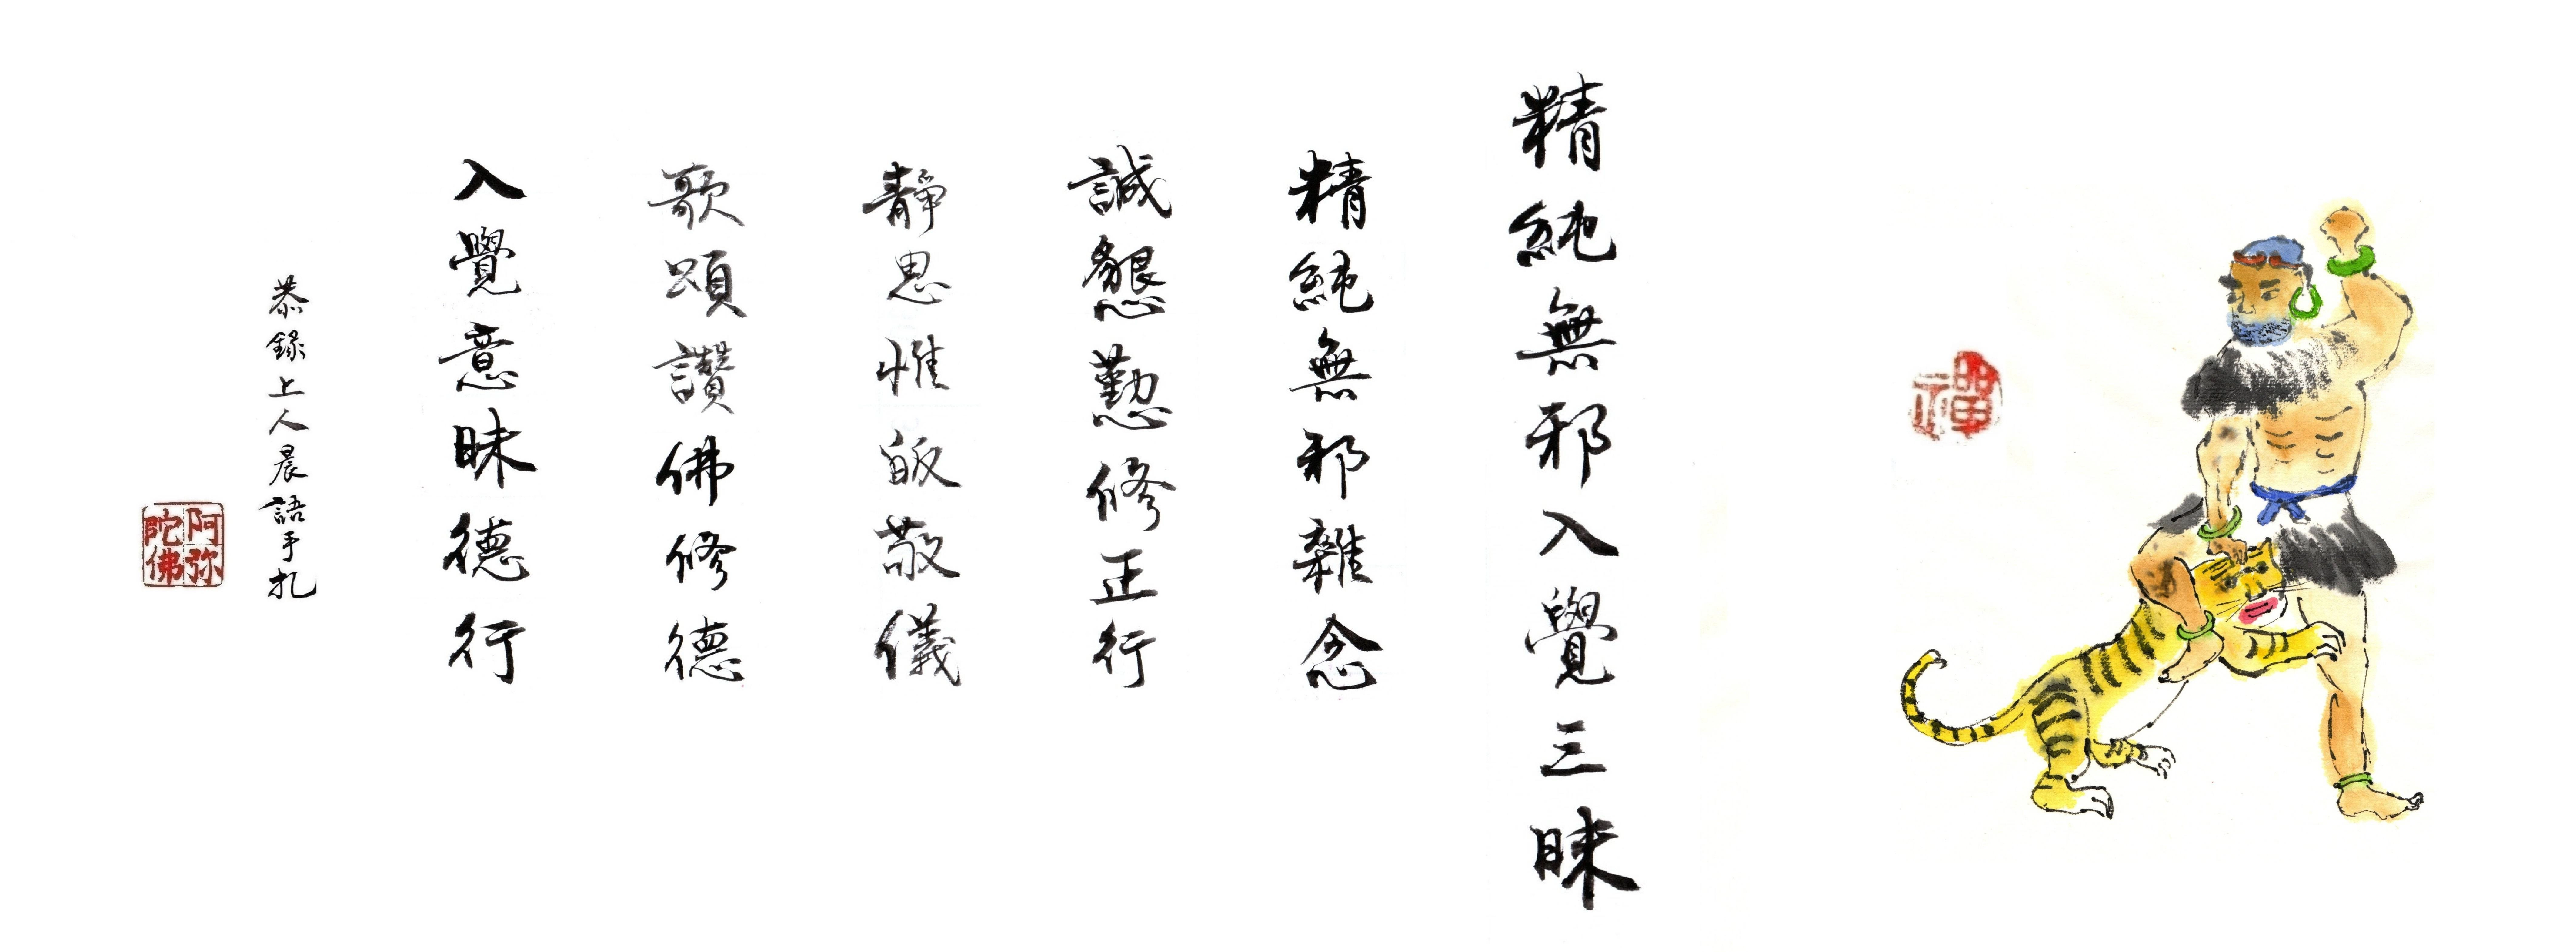 禪
精純無邪入覺三昧
精純無邪雜念
誠懇懃修正行
靜思惟皈敬儀
歌頌讚佛修德
入覺意昧德行
恭錄上人晨語手札
阿弥陀佛